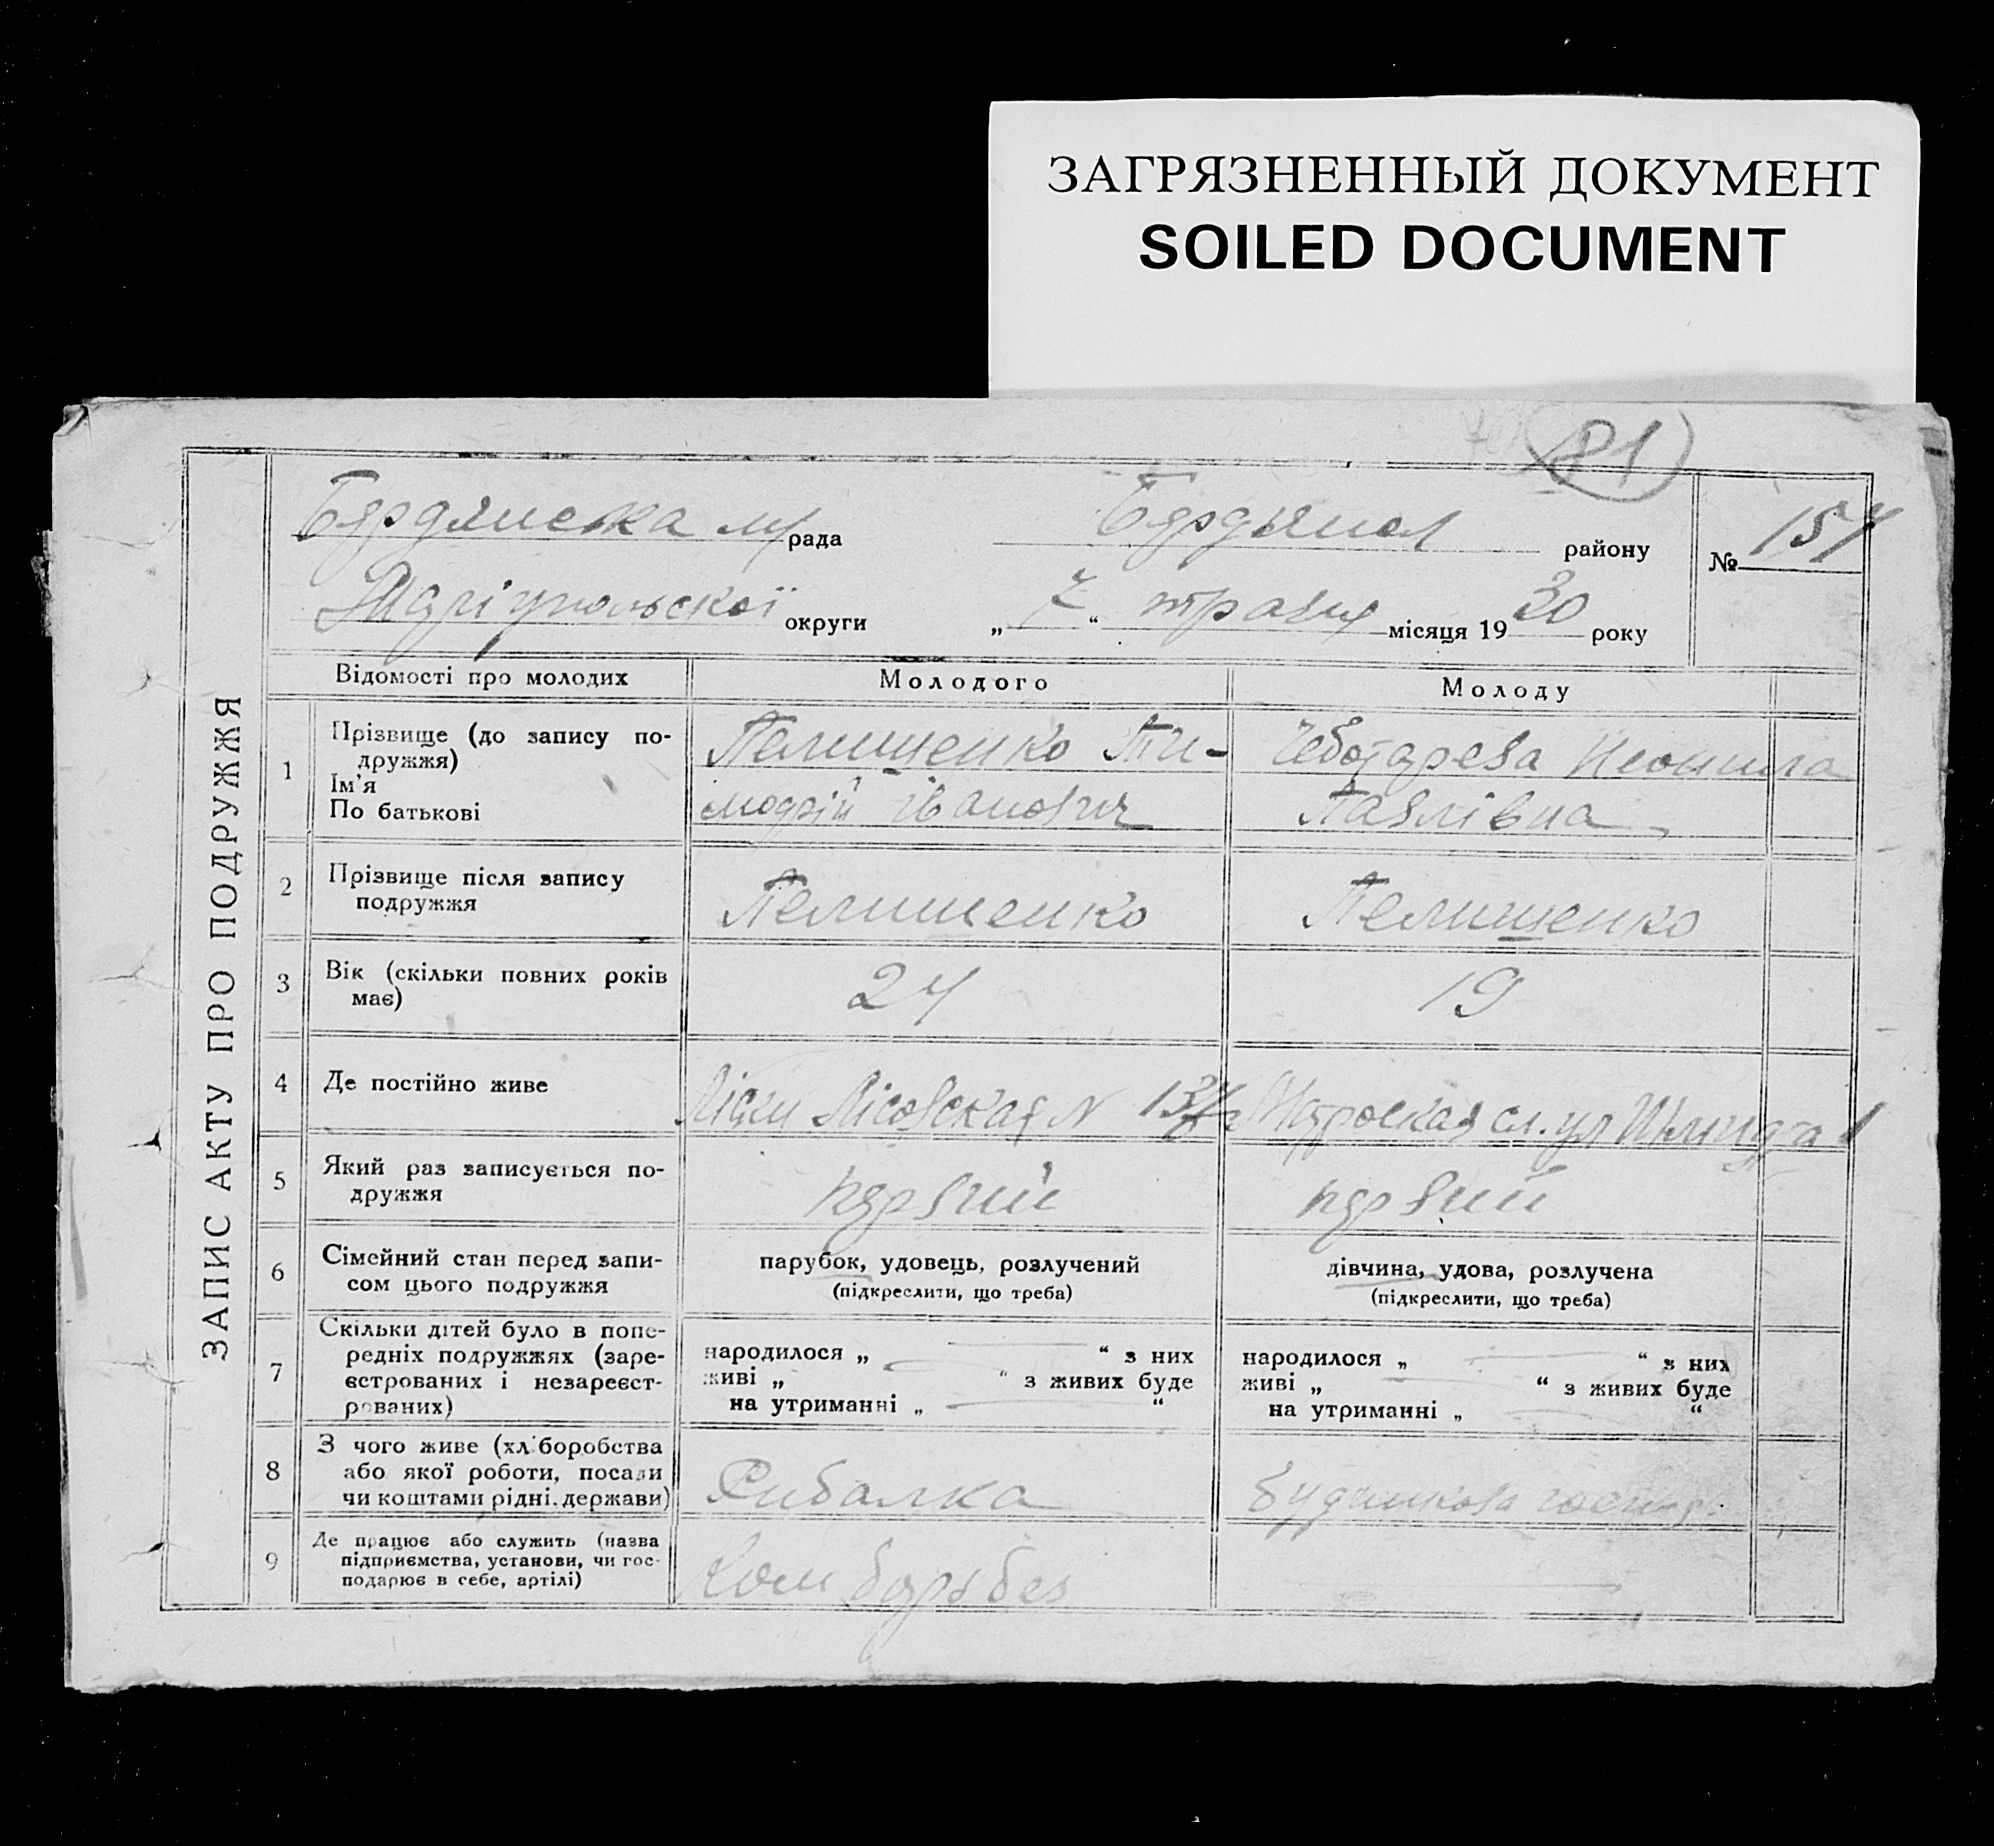 ЗАГРЯЗНЕННЫЙ ДОКУМЕНТ
SOILED DOCUMENT
81
ЗАПИС АКТУ ПРО ПОДРУЖЖЯ
Бердянська м/рада
району
№ 157
Маріупольскої округи
„ 7 “ травня місяця 1930 року
Відомості про молодих
Молодого
Молоду
1
Прізвище (до запису по-
дружжя)
Ім'я
По батькові
Пелишенко Ти-
мофій Іванович
Чеботарева Неонила
Павлівна
2
Прізвище після запису
подружжя
Пелишенко
Пелишенко
3
Вік (скільки повних років
має)
24
19
4
Де постійно живе
Ліски Лісовская №
сл. ул
5
Який раз записується по-
дружжя
первий
первий
6
Сімейний стан перед запи-
сом цього подружжя
парубок, удовець, розлучений
(підкреслити, що треба)
дівчина, удова, розлучена
(підкреслити, що треба)
7
Скільки дітей було в попе-
редніх подружжях (заре-
єстрованих і незареєст-
рованих)
народилося „ — “ з них
живі „ — “ з живих буде
на утриманні „ — “
народилося „ — “ з них
живі „ — “ з живих буде
на утриманні „ — “
8
З чого живе (хліборобства
або якої роботи, посади
чи коштами рідні, держави)
Рибалка
9
Де працює або служить (назва
підприємства, установи, чи гос-
подарює в себе, артілі)